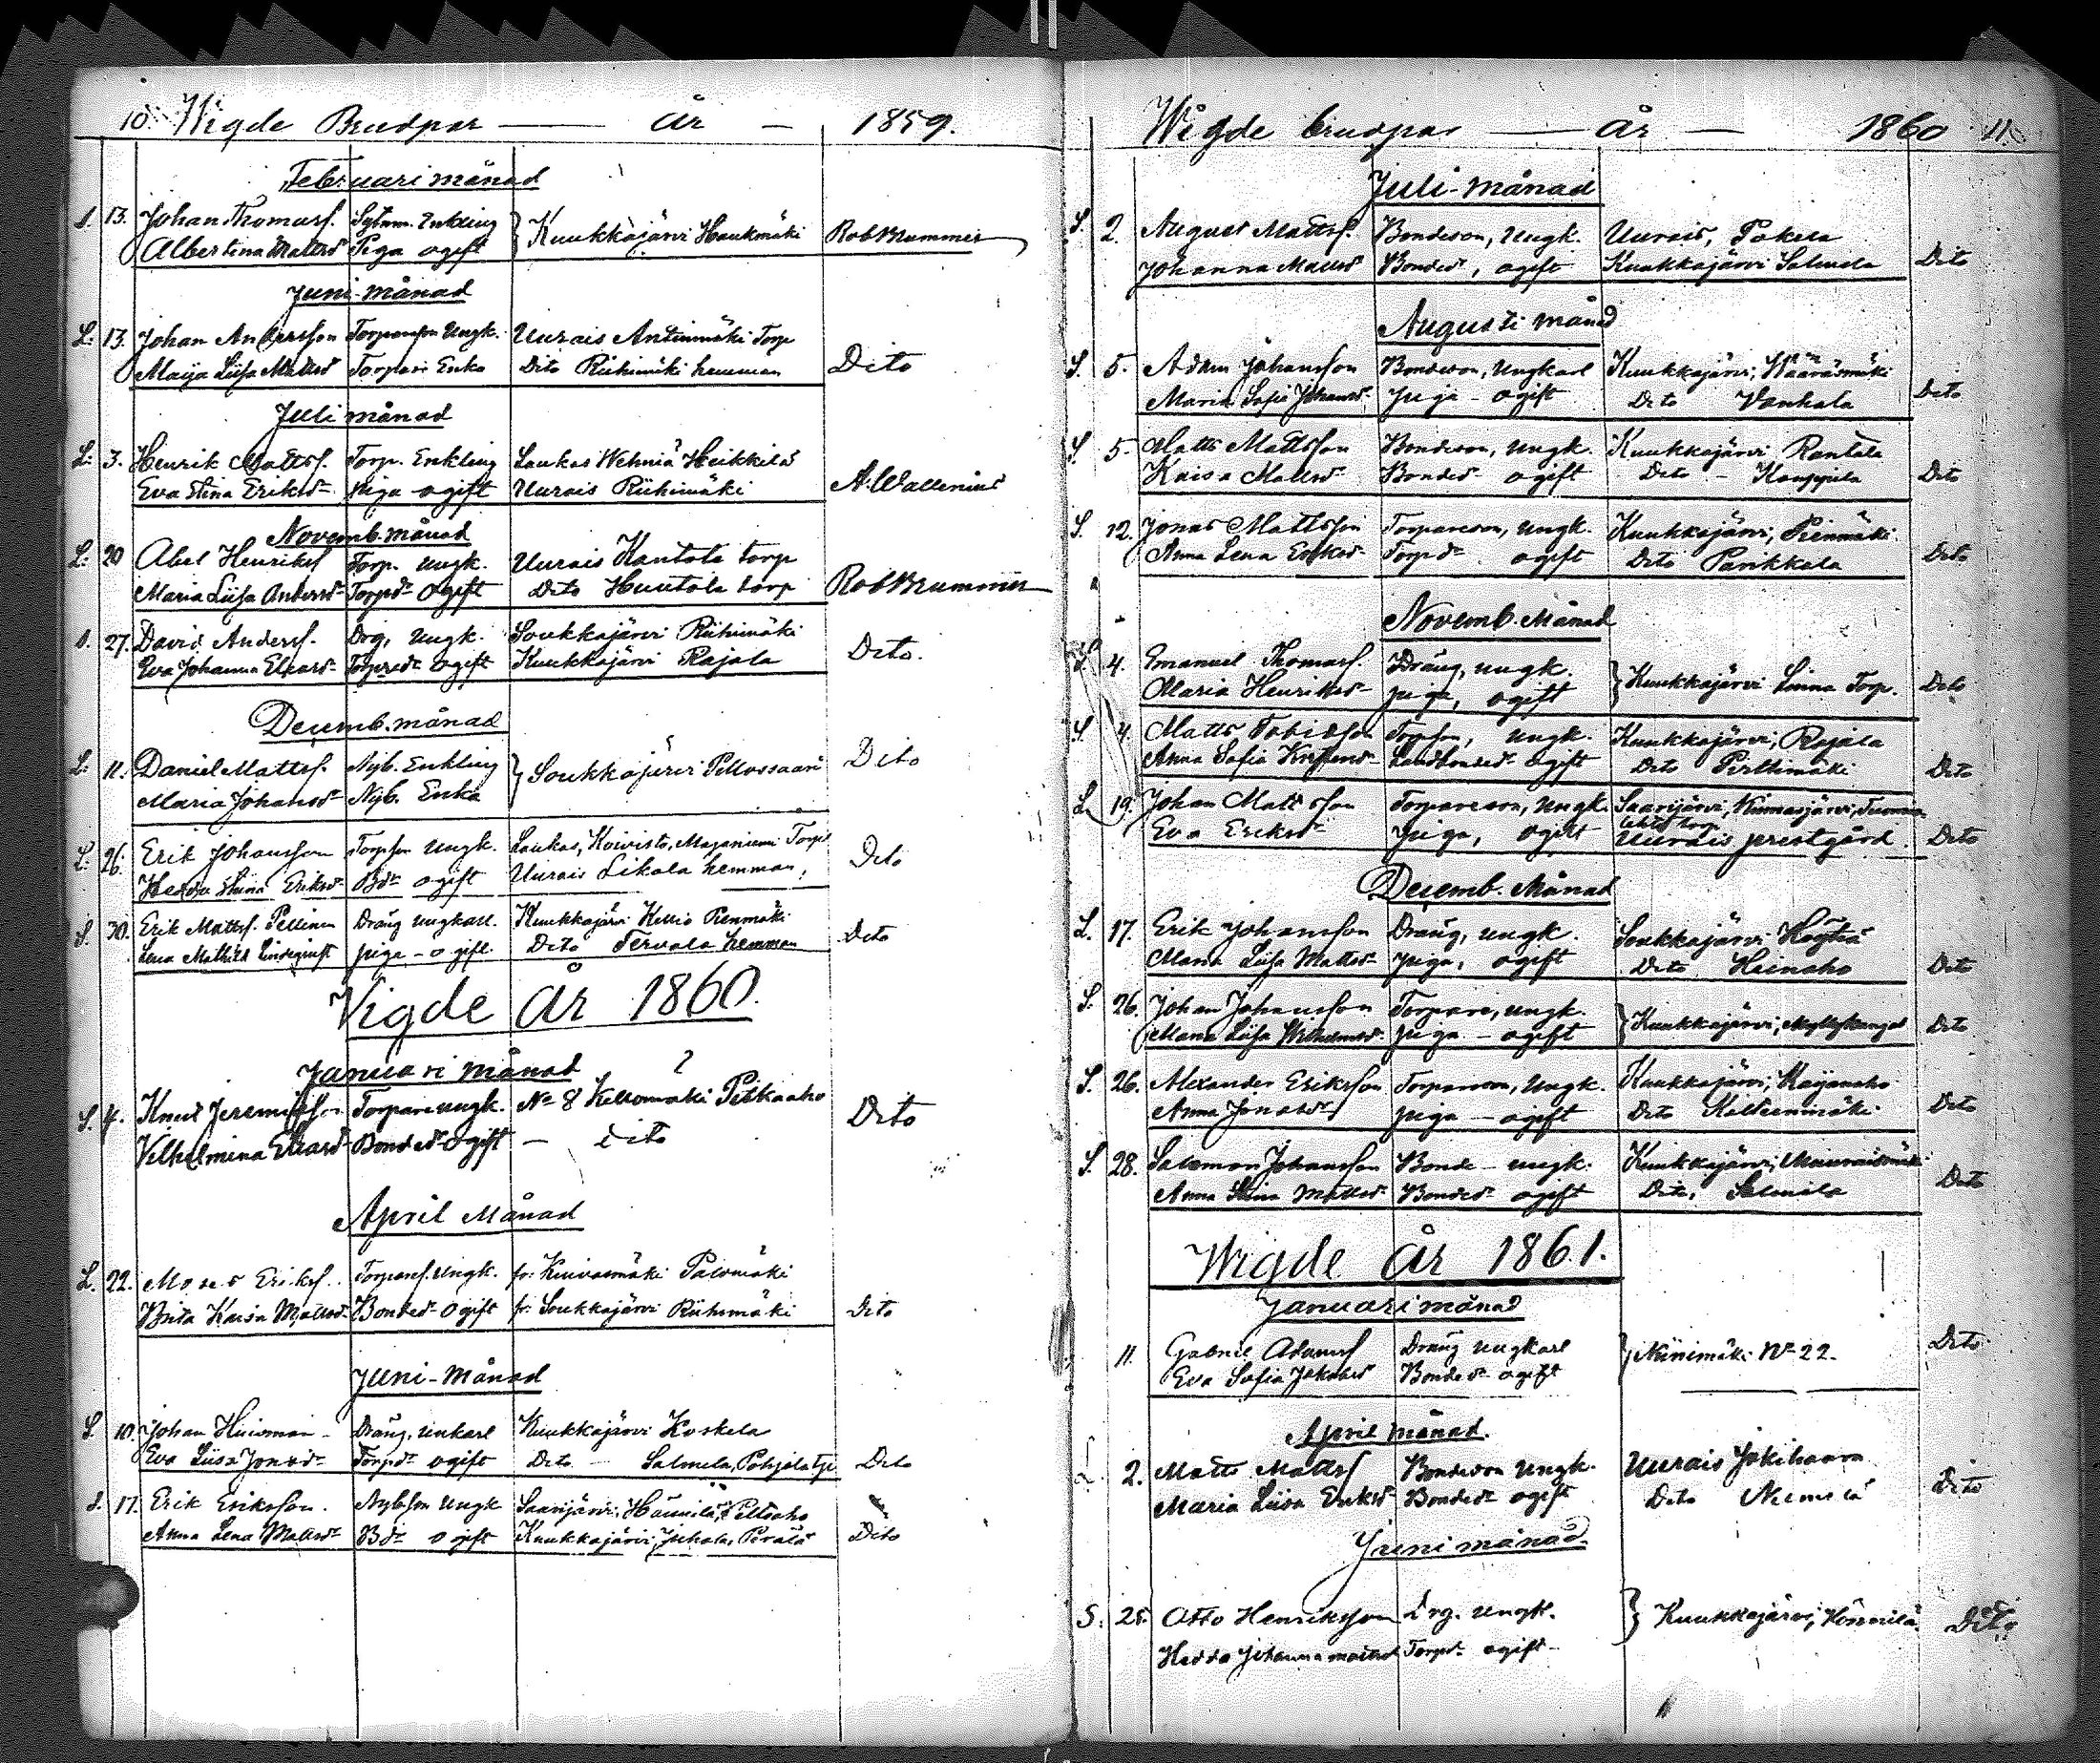 10. Wigde Brudpar — År — 1859.
Februari månad
S. 13. Johan Thomasf. Sytnm. Enkling } Kuukkajärvi Haukmäki Rob Brummer
Albertina Mattsd Piga ogift
Juni månad
L: 13. Johan Andersson Torpareson Ungk. Uurais Antinmäki Torp
Maija Liisa Mattsd Torpari Enka Dito Riihimäki hemman Dito
Juli månad
L: 3. Henrik Mattsf. Torp. Enkling Laukas Wehniä Heikkilä
Eva Stina Eriksd. piga ogift Uurais Riihimäki A. Wallenius
Novemb. månad
L: 20 Abel Henriksf Torp. ungk. Uurais Kantola torp
Maria Liisa Andersd. Torpd. ogift Dito Huutola torp Rob Brummer
S. 27. David Andersf. Drg, ungk. Soukkajärvi Riihimäki
Eva Johanna Eliasd. Torpared. ogift Kuukkajärvi Rajala Dito.
Decemb. månad
L: 11. Daniel Mattsf. Nyb. Enkling } Soukkajärvi Peltosaari Dito
Maria Johansd Nyb. Enka
L: 26. Erik Johansson Torpson ungk. Laukas, Koivisto, Majaniemi Torp
Hedda Stina Eriksd. Bd. ogift Uurais Likola hemman, Dito
S. 30. Erik Mattsf. Pellinen Dräng ungkarl. Kuukkajärvi Kellio Pienmäki
Lena Mathild Lindqvist piga - ogift. Dito Tervala hemman Dito
Vigde År 1860.
Januari månad ?
S. 4. Knut Jeremiasson Torpare ungk. No 8 Kellomäki Pitkäaho Dito
Vilhelmina Eliasd. Bonded. ogift — dito
April Månad
L. 22. Moses Eriksf. Torparef. ungk. fr. Kuivasmäki Palomäki
Brita Kaisa Mattsd. Bonded. ogift fr. Soukkajärvi Riihimäki Dito
Juni-Månad
S. 10. Johan Dräng, unkarl Kuukkajärvi Koskela
Eva Liisa Jonasd. Torpd. ogift Dito — Salmela, Pohjola Dito
S. 17. Erik Eriksson. Nybson ungk Saarijärvi, Hännilä, Peltoaho
Anna Lena Mattsd. Bd. ogift Kuukkajärvi, Juhola, Perälä Dito
Wigde brudpar — år — 1860 11.
Juli-månad
S. 2. August Mattsf. Bondeson, Ungk. Uurais, Pokela
Johanna Mattsd Bonded, ogift Kuukkajärvi Salmela Dito
Augusti månad
S. 5. Adam Johansson Bondeson, Ungkarl Kuukkajärvi, Wääräsmäki
Maria Sofia Johansd. piga - ogift Dito Vanhala Dito
S. 5. Matts Mattsson Bondeson, ungk. Kuukkajärvi Rantala
Kaisa Mattsd. Bonded. ogift Dito - Kauppila Dito
S. 12. Jonas Mattsson Torpareson, ungk. Kuukkajärvi, Pienmäki
Anna Lena Eriksd. Torpd. ogift Dito Pankkala Dito
Novemb. Månad
S. 4. Emanuel Thomasf. Dräng, ungk. } Kuukkajärvi Linna Torp. Dito
Maria Henriksd. piga, ogift
S. 4. Matts Tobiasson Torpson, ungk. Kuukkajärvi, Rajala
Anna Sofia Landbonded. ogift Dito Pirttimäki Dito
L. 19. Johan Mattsson Torpareson, ungk. Saarijärvi, Kiimasjärvi, Tuomm-
lehto torp
Eva Eriksd. piga, ogift Uurais prestgård Dito
Decemb. Månad
L. 17. Erik Johansson Dräng, ungk. Soukkajärvi Höytiä
Maria Liisa Mattsd. piga, ogift Dito Heinaho Dito
S. 26. Johan Johansson Torpare, ungk. } Kuukkajärvi, Myllykangas Dito
Maria Liisa Wilhelmsd. piga - ogift
S. 26. Alexander Eriksson Torpareson, ungk. Kuukkajärvi, Kaijanaho
Anna Jonasd piga — ogift Dito Kalteenmäki Dito
S. 28. Salomon Johansson Bonde - ungk. Kuukkajärvi,
Anna Stina Mattsd. Bonded. ogift Dito, Salmela Dito
Wigde År 1861.
Januari månad
11. Gabriel Adamsf Dräng ungkarl } Niinimäki No 22. Dito
Eva Sofia Jakobsd Bonded. ogift
April månad.
L. 2. Matts Mattsf Bondeson ungk. Uurais Jokihaara
Maria Liisa Eriksd Bonded. ogift Dito Niemelä Dito
Juni månad.
S. 25. Otto Henriksson drg. ungk. } Kuukkajärvi, Hännilä Dito
Hedda Johanna mattsd Torpd. ogift -